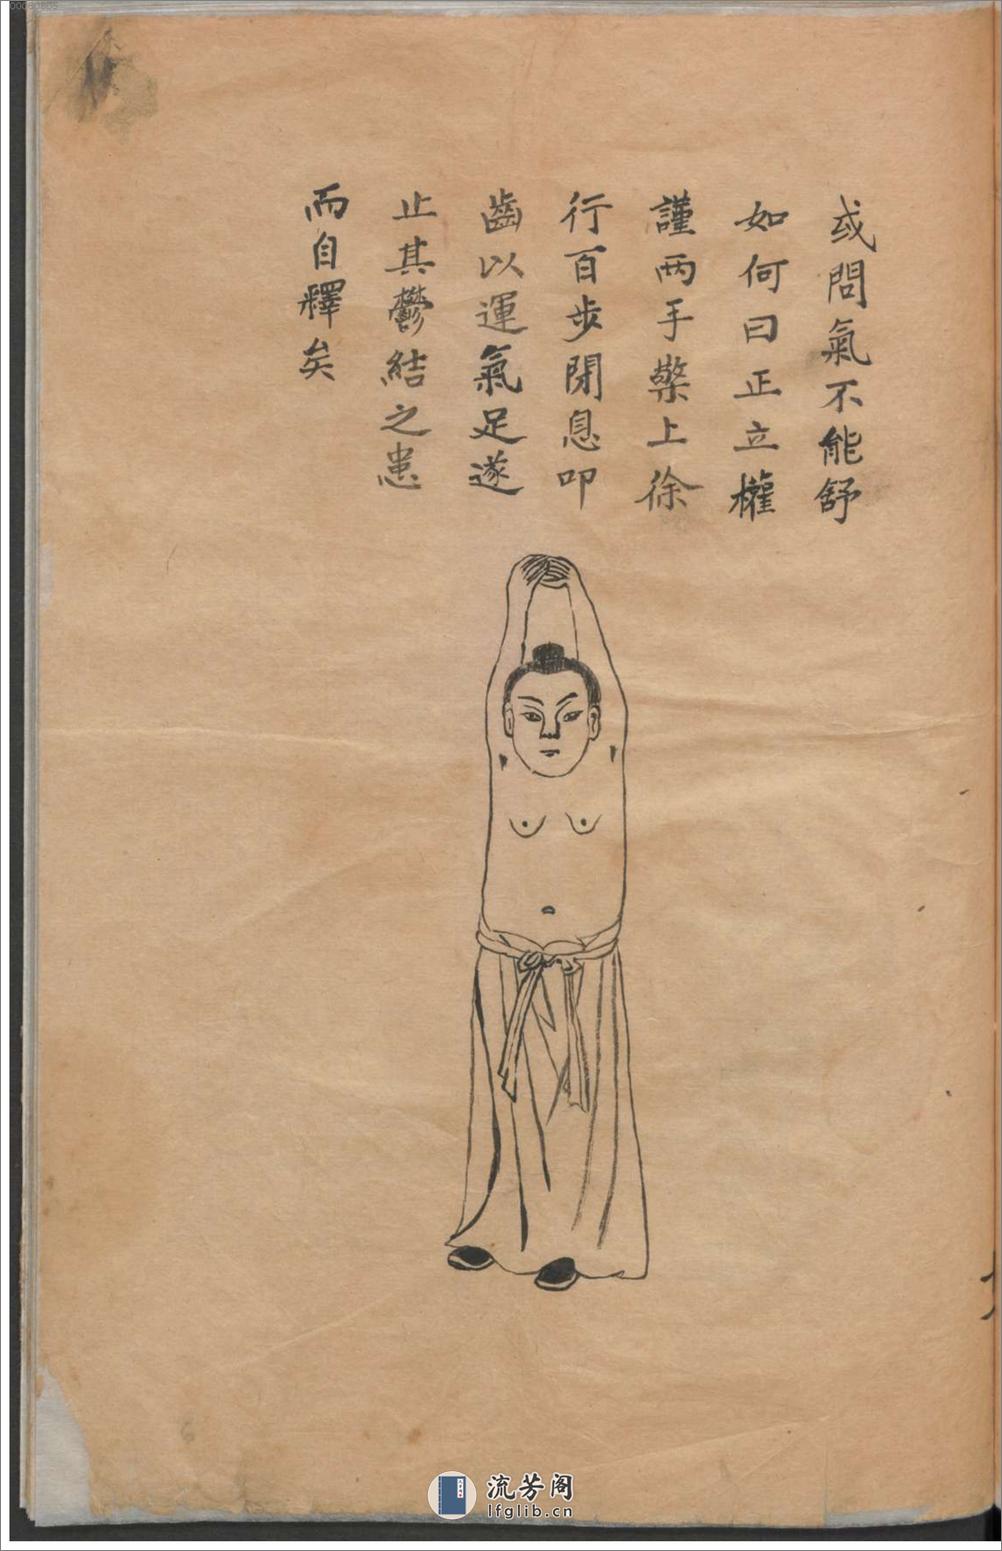 或問氣不能舒
如何曰正立權
謹兩手檠上徐
行百步閉息叩
齒以運氣足遂
止其鬱結之患
而自釋矣
流芳阁
lfglib.cn